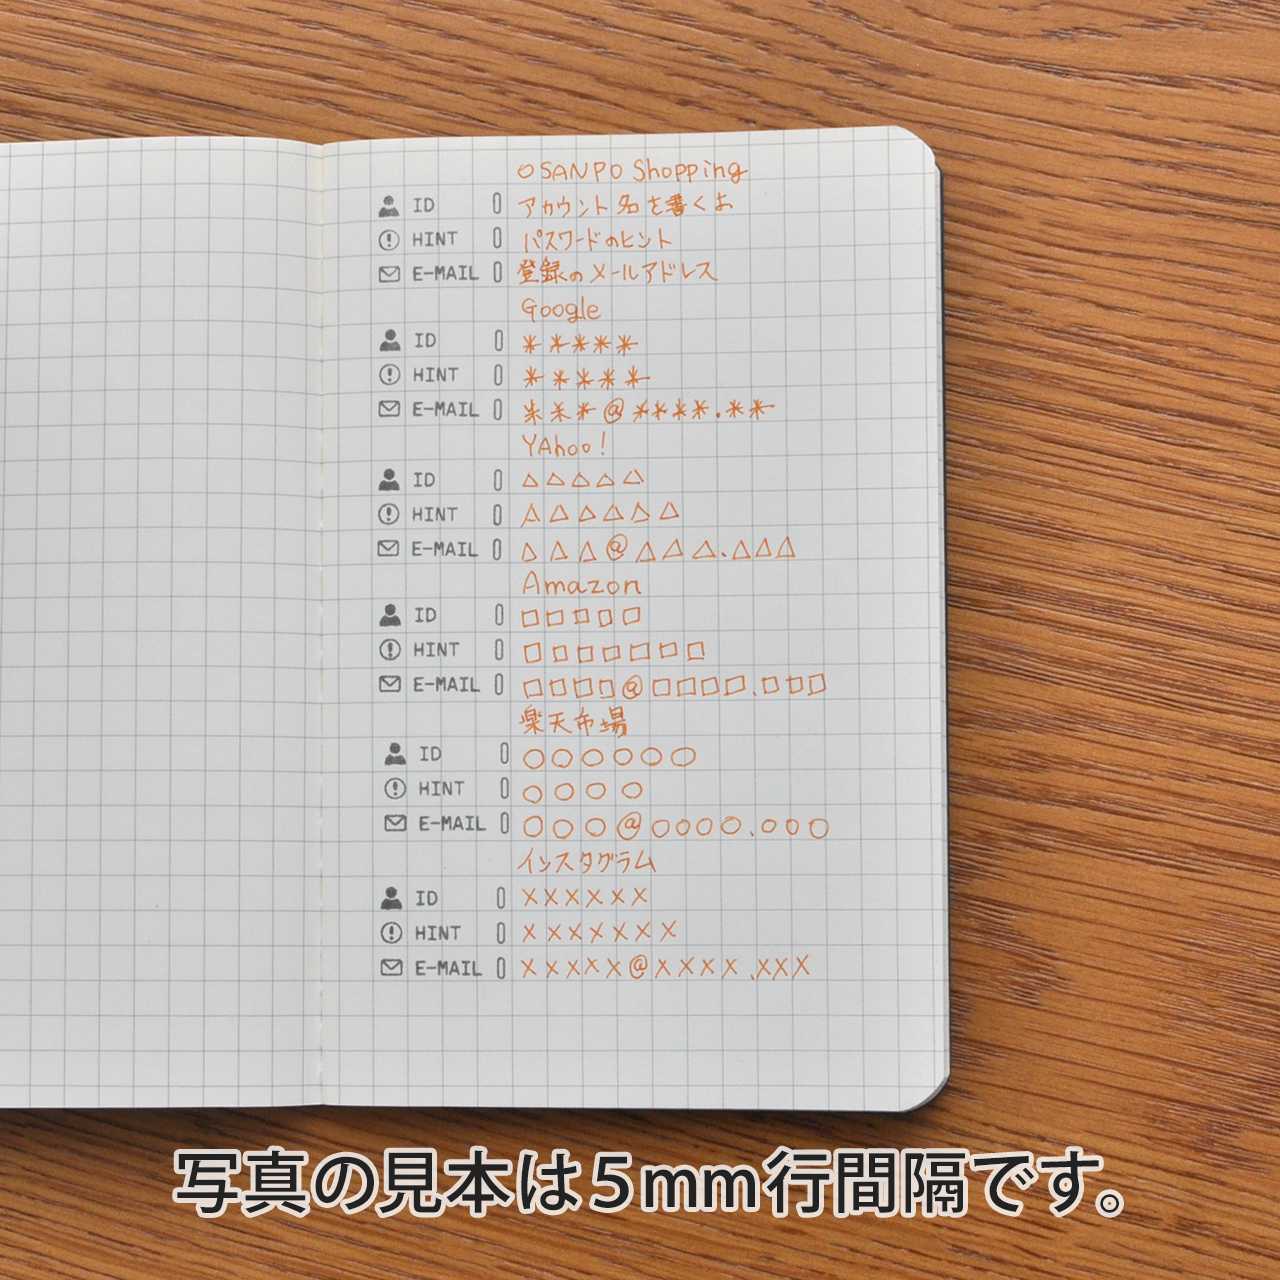 OSANPO Shopping
ID アカウント名を書くよ
HINT パスワードのヒント
E-MAIL 登録のメールアドレス
Google
ID *****
HINT *****
E-MAIL ***@****.**
YAhoo!
ID △△△△△
HINT △△△△△△
E-MAIL △△△@△△△.△△△
Amazon
ID □□□□□
HINT □□□□□□□
E-MAIL □□□□@□□□□.□□□
楽天市場
ID ○○○○○○
HINT ○○○○
E-MAIL ○○○@○○○○.○○○
インスタグラム
ID ××××××
HINT ×××××××
E-MAIL ×××××@××××.×××
写真の見本は5mm行間隔です。